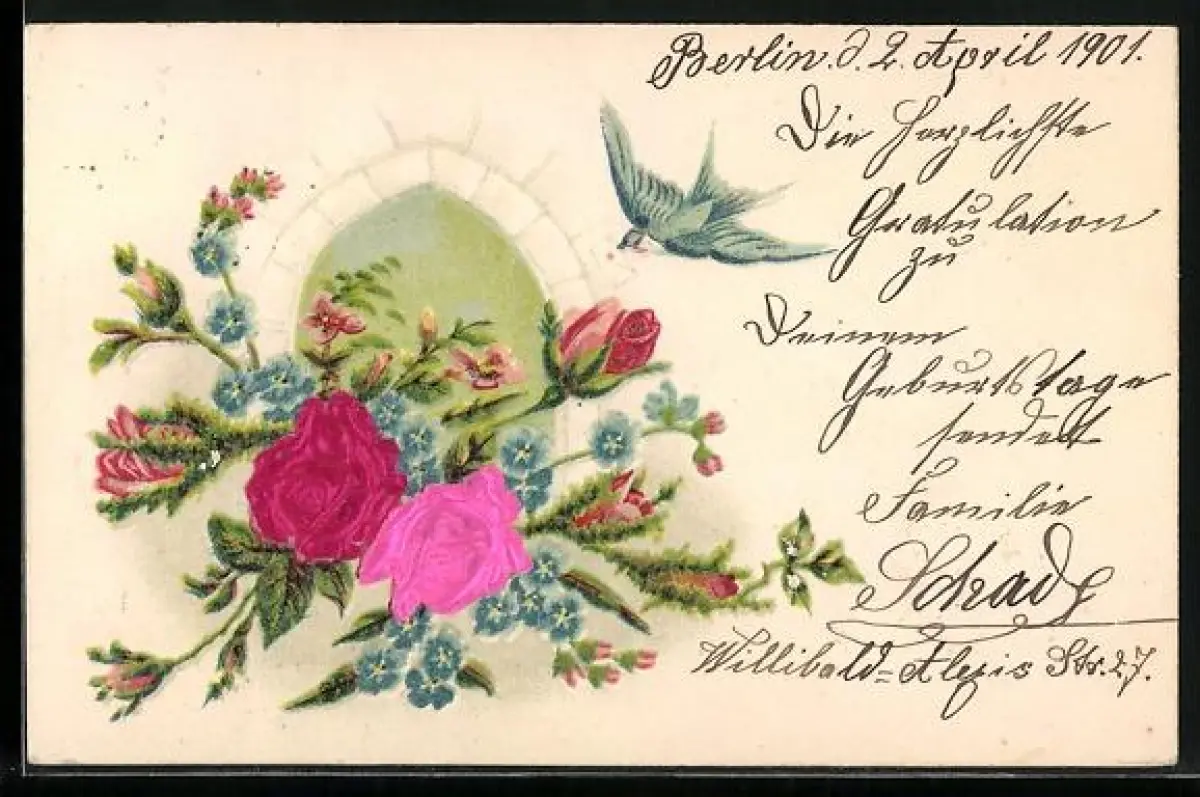 Berlin. d. 2. April 1901.
Die herzlichste
Gratulation
zu
Deinem
Geburtstage
sendet
Familie
Schade
Willibald=Alexis Str. 27.